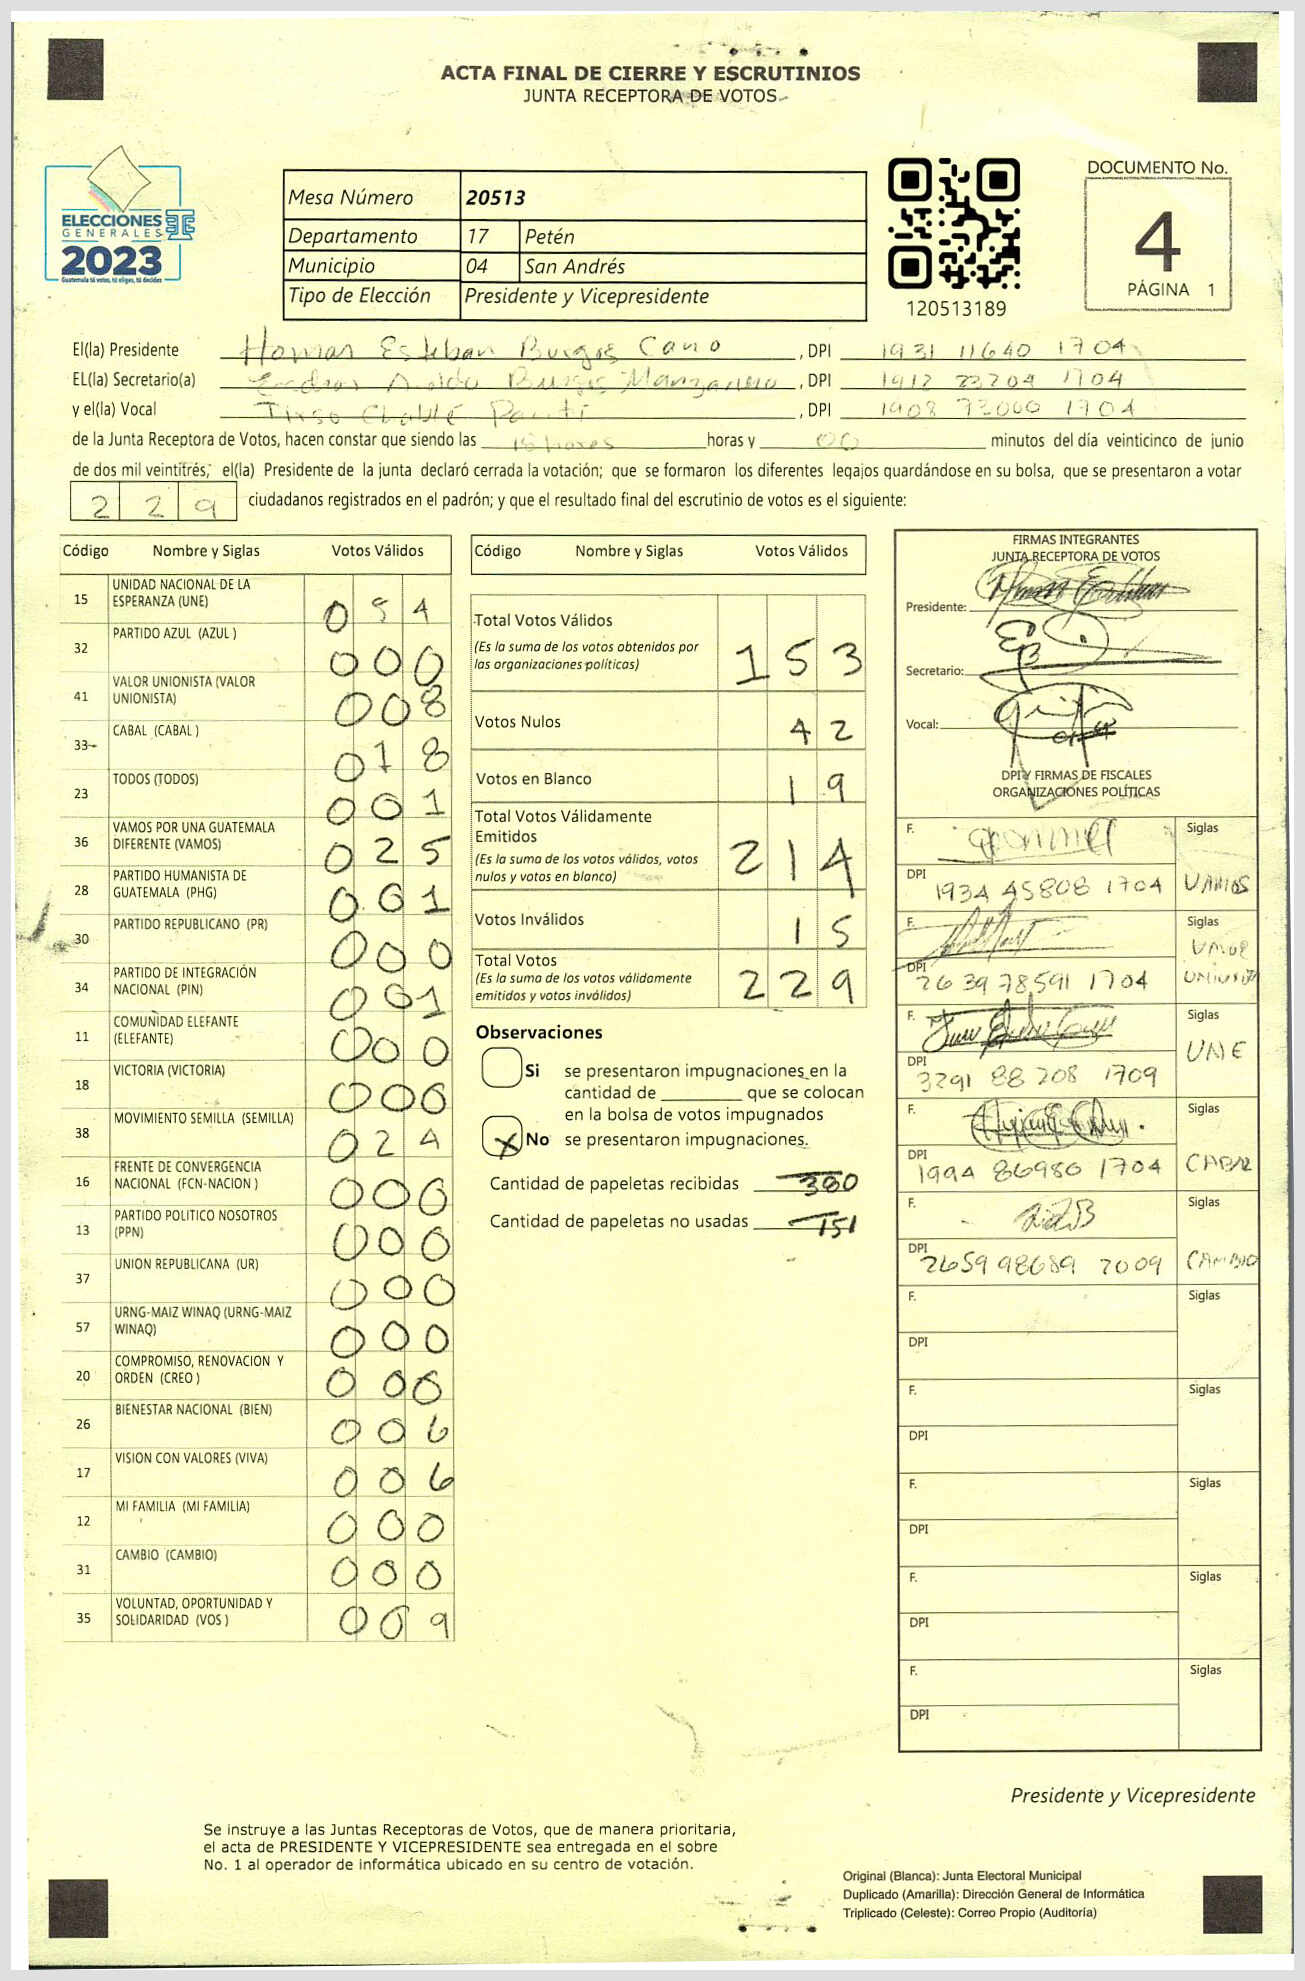 ACTA FINAL DE CIERRE Y ESCRUTINIOS
JUNTA RECEPTORA DE VOTOS
ELECCIONES
GENERALES
2023
Guatemala tú votas, tú eliges, tú decides
Mesa Número 20513
Departamento 17 Petén
Municipio 04 San Andrés
Tipo de Elección Presidente y Vicepresidente
120513189
DOCUMENTO No.
4
PÁGINA 1
El(la) Presidente Homar Esteban Burgos Cano, DPI 1931 11640 1704
EL(la) Secretario(a) Burgos Manzanero, DPI 1912 23204 1704
y el(la) Vocal Tirso Chablé, DPI 1908 73000 1704
de la Junta Receptora de Votos, hacen constar que siendo las 18 horas horas y 00 minutos del día veinticinco de junio
de dos mil veintitrés, el(la) Presidente de la junta declaró cerrada la votación; que se formaron los diferentes legajos guardándose en su bolsa, que se presentaron a votar
229 ciudadanos registrados en el padrón; y que el resultado final del escrutinio de votos es el siguiente:
Código Nombre y Siglas Votos Válidos
15 UNIDAD NACIONAL DE LA ESPERANZA (UNE) 054
32 PARTIDO AZUL (AZUL ) 000
41 VALOR UNIONISTA (VALOR UNIONISTA) 008
33 CABAL (CABAL ) 018
23 TODOS (TODOS) 001
36 VAMOS POR UNA GUATEMALA DIFERENTE (VAMOS) 025
28 PARTIDO HUMANISTA DE GUATEMALA (PHG) 001
30 PARTIDO REPUBLICANO (PR) 000
34 PARTIDO DE INTEGRACIÓN NACIONAL (PIN) 001
11 COMUNIDAD ELEFANTE (ELEFANTE) 000
18 VICTORIA (VICTORIA) 000
38 MOVIMIENTO SEMILLA (SEMILLA) 024
16 FRENTE DE CONVERGENCIA NACIONAL (FCN-NACION ) 000
13 PARTIDO POLITICO NOSOTROS (PPN) 000
37 UNION REPUBLICANA (UR) 000
57 URNG-MAIZ WINAQ (URNG-MAIZ WINAQ) 000
20 COMPROMISO, RENOVACION Y ORDEN (CREO ) 000
26 BIENESTAR NACIONAL (BIEN) 006
17 VISION CON VALORES (VIVA) 006
12 MI FAMILIA (MI FAMILIA) 000
31 CAMBIO (CAMBIO) 000
35 VOLUNTAD, OPORTUNIDAD Y SOLIDARIDAD (VOS ) 009
Código Nombre y Siglas Votos Válidos
Total Votos Válidos 153
(Es la suma de los votos obtenidos por
las organizaciones políticas)
Votos Nulos 42
Votos en Blanco 19
Total Votos Válidamente
Emitidos 214
(Es la suma de los votos válidos, votos
nulos y votos en blanco)
Votos Inválidos 15
Total Votos 229
(Es la suma de los votos válidamente
emitidos y votos inválidos)
Observaciones
Si se presentaron impugnaciones en la
cantidad de ________ que se colocan
en la bolsa de votos impugnados
X No se presentaron impugnaciones.
Cantidad de papeletas recibidas 380
Cantidad de papeletas no usadas 151
FIRMAS INTEGRANTES
JUNTA RECEPTORA DE VOTOS
Presidente:
Secretario:
Vocal:
DPI Y FIRMAS DE FISCALES
ORGANIZACIONES POLÍTICAS
F. Siglas
DPI 1934 45808 1704 VAMOS
F. Siglas
DPI 26 39 78591 1704 VALOR UNIONISTA
F. Siglas
DPI 3291 88 208 1709 UNE
F. Siglas
DPI 1994 86980 1704 CABAL
F. Siglas
DPI 2659 98689 2009 CAMBIO
F. Siglas
DPI
F. Siglas
DPI
F. Siglas
DPI
F. Siglas
DPI
F. Siglas
DPI
Presidente y Vicepresidente
Se instruye a las Juntas Receptoras de Votos, que de manera prioritaria,
el acta de PRESIDENTE Y VICEPRESIDENTE sea entregada en el sobre
No. 1 al operador de informática ubicado en su centro de votación.
Original (Blanca): Junta Electoral Municipal
Duplicado (Amarilla): Dirección General de Informática
Triplicado (Celeste): Correo Propio (Auditoría)